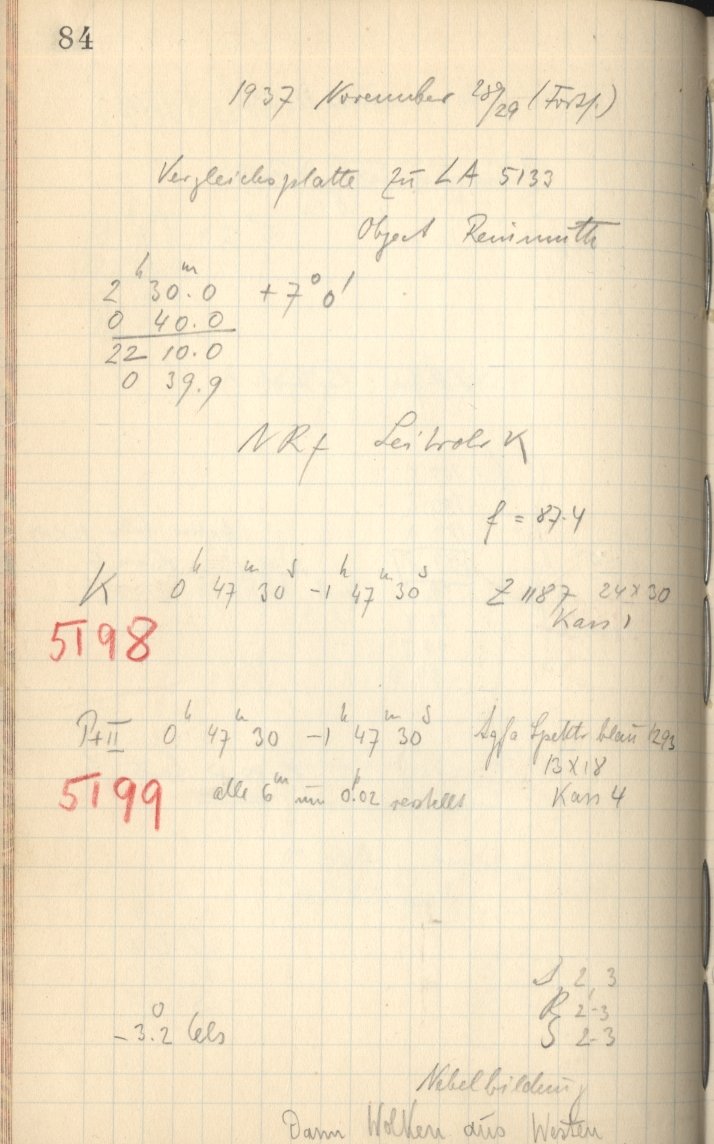 84
1937 November 28/29 (Forts.)
Vergleichsplatte zu LA 5133
Object Reinmuth
2h 30m.0 +7° 0'
0 40.0
22 10.0
0 39.9
NRf Leitrohr K
f = 87.4
K 0h 47m 30s - 1h 47m 30s Z 1187 24x30
Kass 1
5198
P+II 0h 47m 30 - 1h 47m 30s Agfa Spektr blau 1293
13x18
5199 alle 6m um 0.02 verstellt Kass 4
2,3
R 2-3
-3°.2 Cels S 2-3
Nebelbildung
Dann Wolken aus Westen